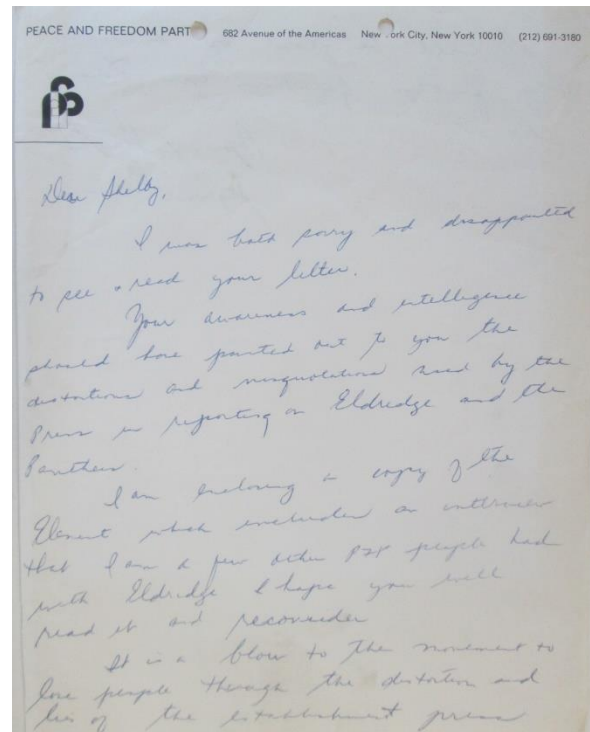 PEACE AND FREEDOM PART 682 Avenue of the Americas New ork City, New York 10010 (212) 691-3180
pfp
Dear Shelby,
I was both sorry and disappointed
to see & read your letter.
Your awareness and intelligence
should have pointed out to you the
distortions and misquotations used by the
Press in reporting on Eldredge and the
Panthers.
I am enclosing a copy of the
Element which includes an interview
that I and a few other P&F people had
with Eldridge I hope you will
read it and reconsider
It is a blow to the movement to
lose people through the distortion and
lies of the establishment press